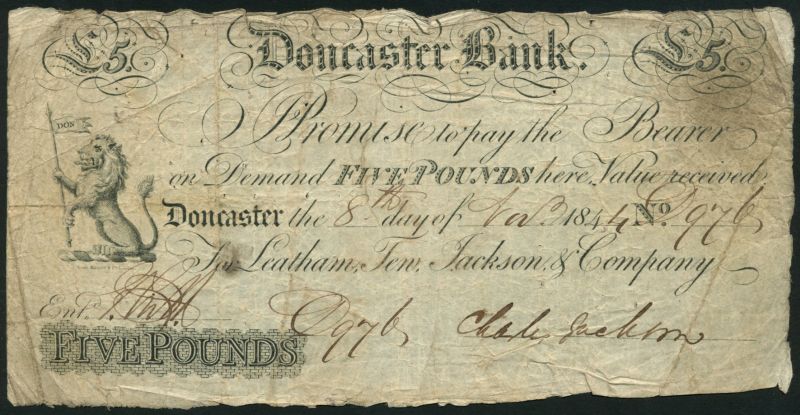 £5. Doncaster Bank. £5.
DON
I Promise to pay the Bearer
on Demand FIVE POUNDS here Value received
Doncaster the 8th day of Nov 1844 No. D976
For Leatham, Tew, Jackson, & Company
Entd.
D976 Charles Jackson
FIVE POUNDS